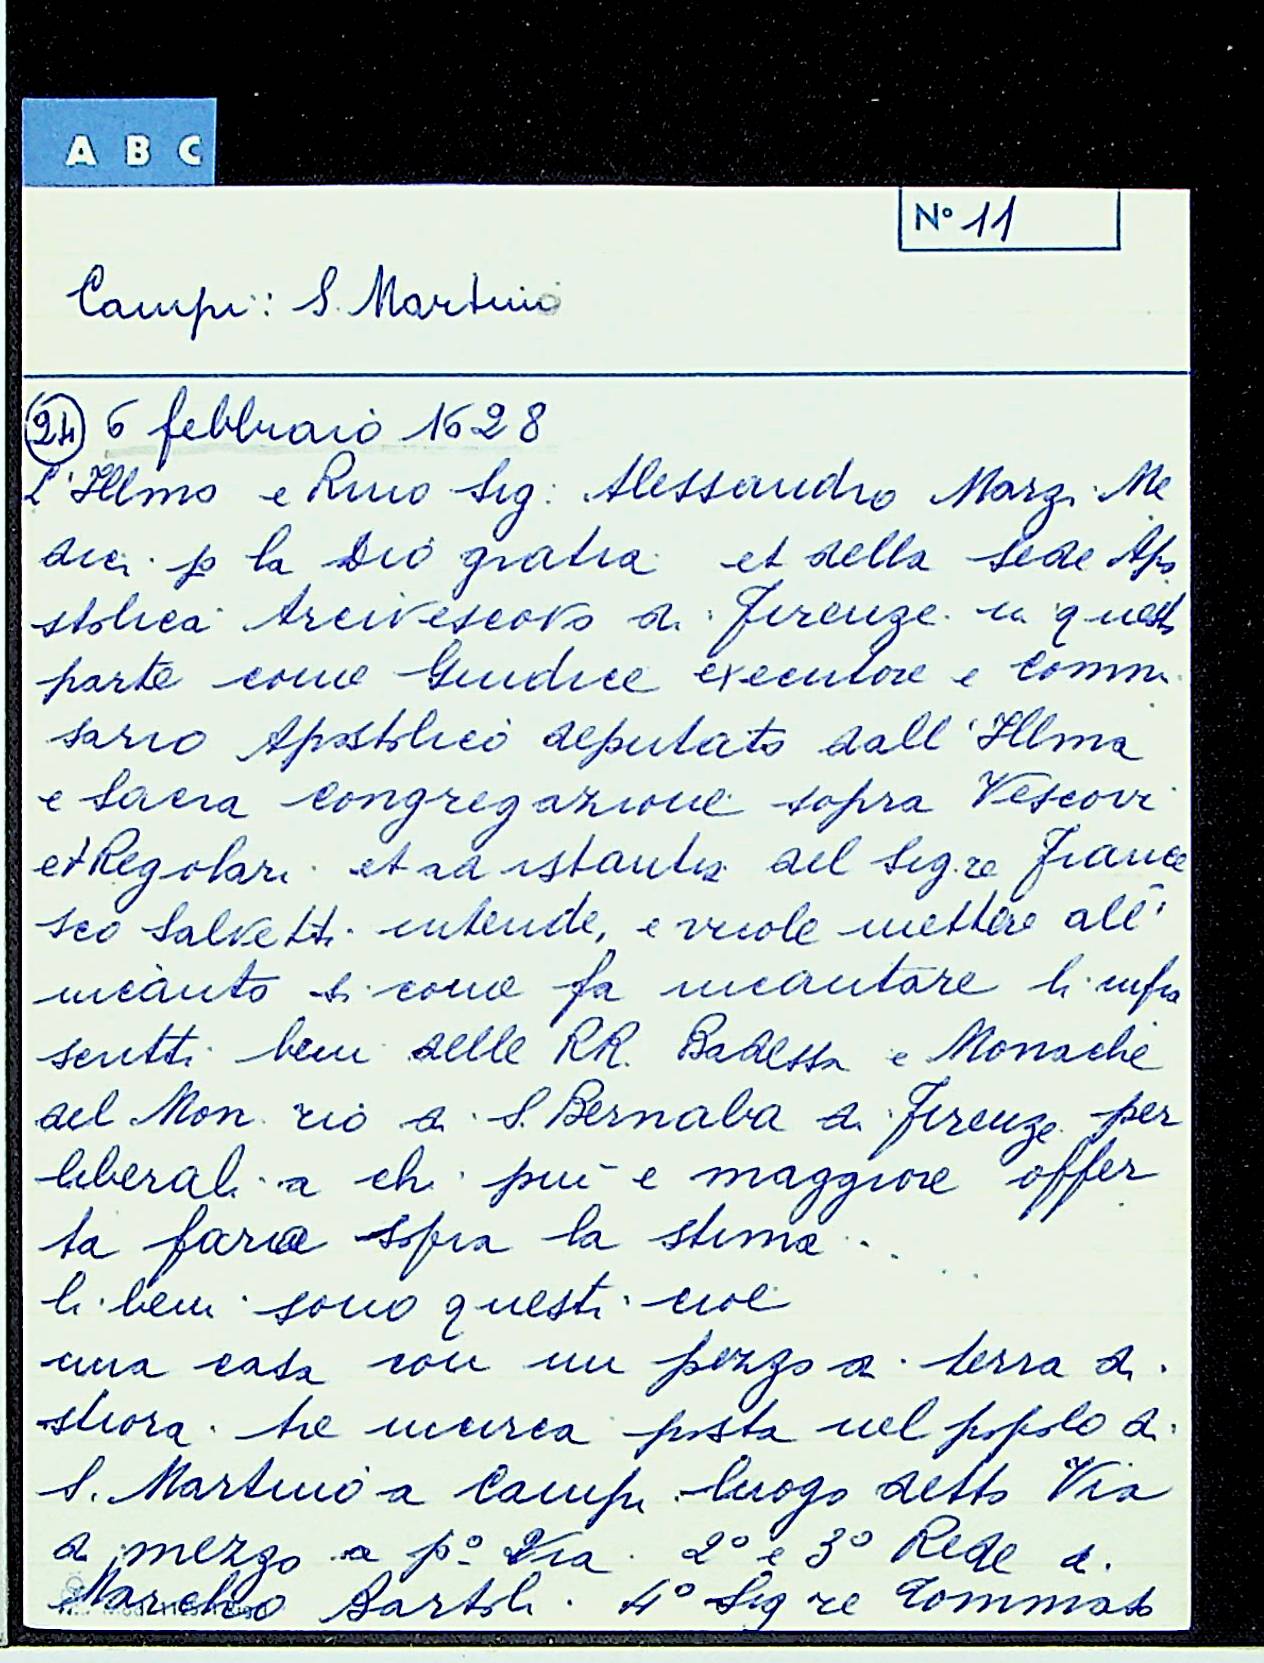 A B C
N° 11
Campi: S. Martino
24 6 febbraio 1628
L'Illmo e Rmo Sig: Alessandro Marzi Me
dici p la Dio gratia et della sede Apo
stolica Arcivescovo di Firenze in questa
parte come Giudice executore e commi
sario Apostolico deputato dall'Illma
e Sacra congregazione sopra Vescovi
et Regolari et ad istantia del Sig.re France
sco Salvetti intende, e vuole mettere all'
incanto si come fa incantare li infra
scritti beni delle RR. Badessa e Monache
del Mon.rio di S. Bernaba di Firenze per
liberali a chi più e maggiore offer
ta farà sopra la stima ...
li beni sono questi cioè
una casa con un pezzo di terra di
stiora tre incirca posta nel popolo di
S. Martino a Campi luogo detto Via
di mezzo a p° Via 2° e 3° Rede di
Bartoli 4° Sig re Tommaso